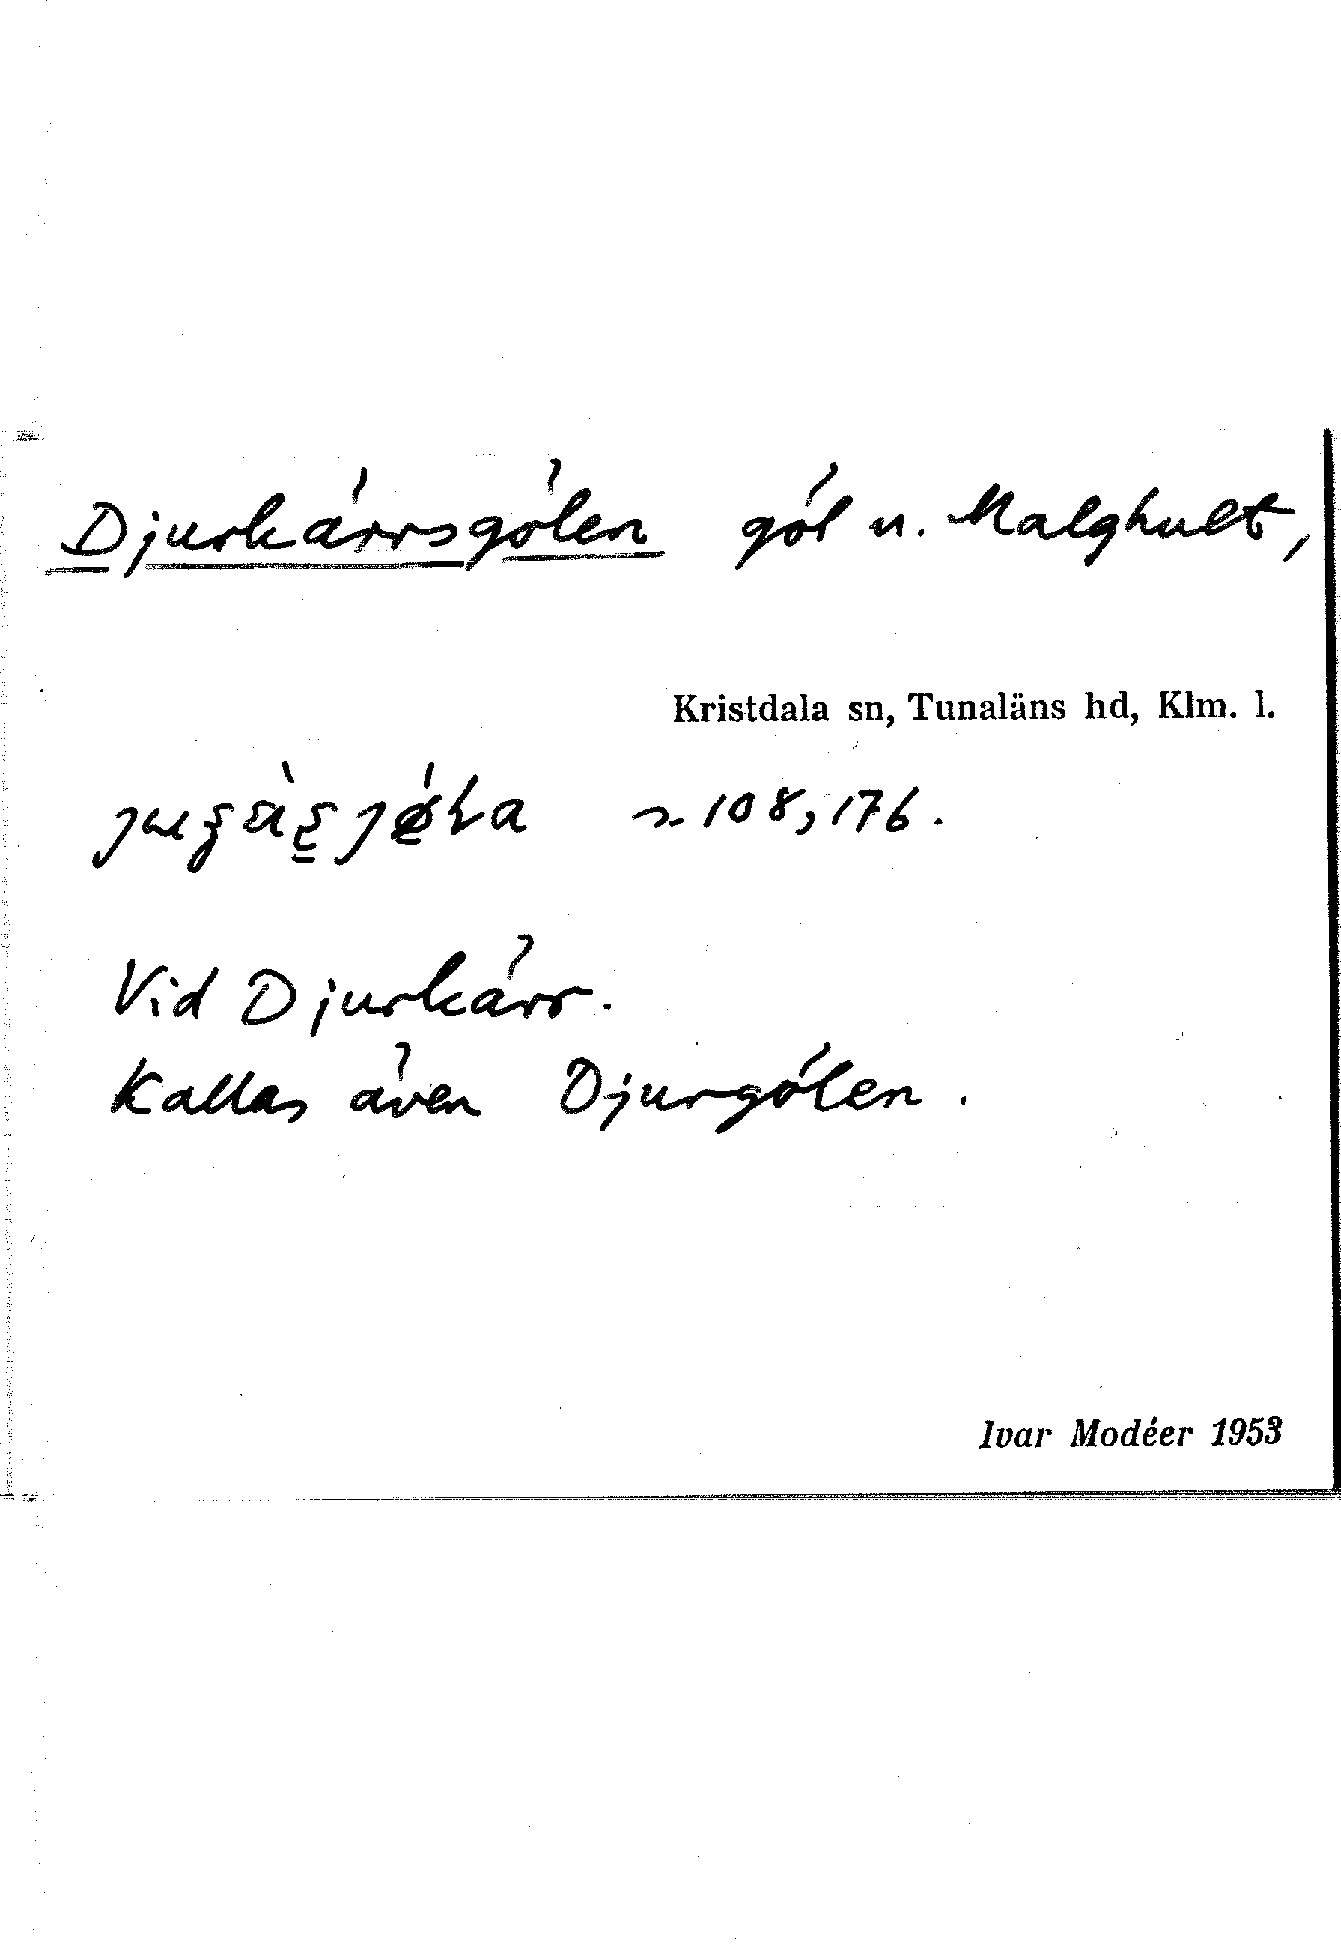 Djurkärrsgölen göl u. Malghult,
Kristdala sn, Tunaläns hd, Klm. l.
108, 176.
Vid Djurkärr.
Kallas även Djurgölen.
Ivar Modéer 1953